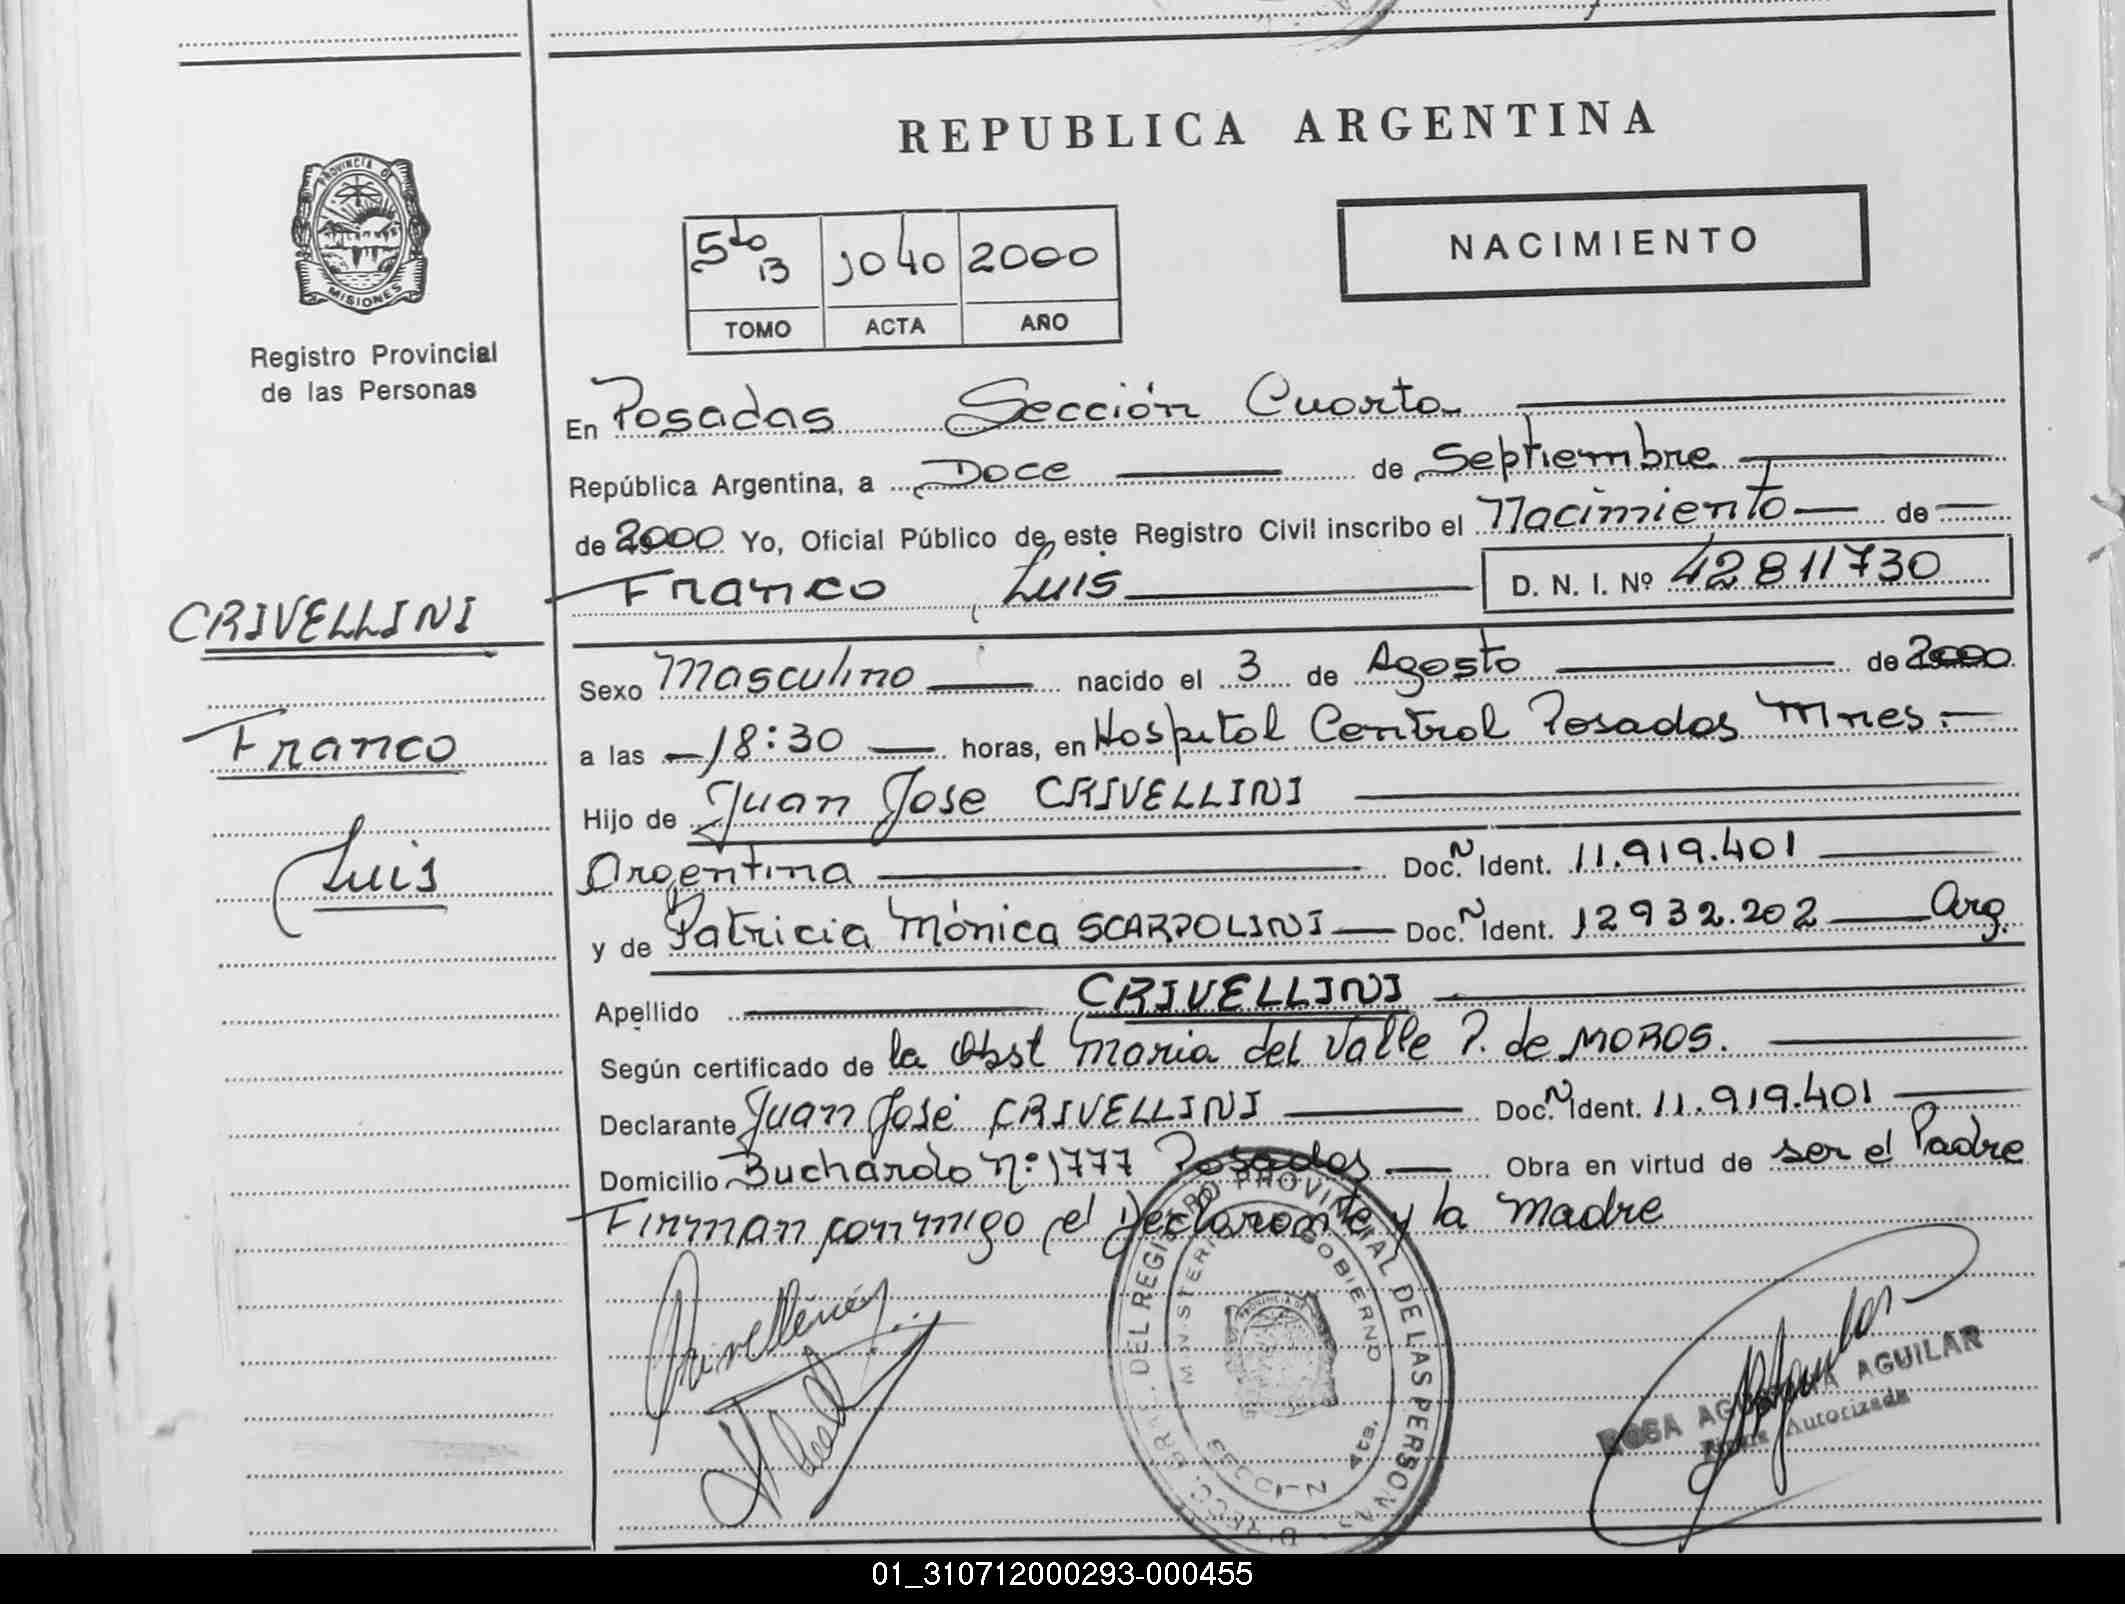 REPUBLICA ARGENTINA
PROVINCIA D
MISIONES
Registro Provincial
de las Personas
5to 13 1040 2000
TOMO ACTA AÑO
NACIMIENTO
En Posadas Sección Cuarta
República Argentina, a Doce de Septiembre
de 2000 Yo, Oficial Público de este Registro Civil inscribo el Nacimiento de
Franco Luis D. N. I. Nº 42811730
CRIVELLINI
Franco
Luis
Sexo Masculino nacido el 3 de Agosto de 2000
a las 18:30 horas, en Hospital Central Posadas Mnes.
Hijo de Juan Jose CRIVELLINI
Argentina Doc. N Ident. 11.919.401
y de Patricia Mónica SCARPOLINI Doc. N Ident. 12932.202 Arg.
Apellido CRIVELLINI
Según certificado de la Obst Maria del Valle P. de MOROS.
Declarante Juan José CRIVELLINI Doc. N Ident. 11.919.401
Domicilio Buchardo Nº 1777 Posadas Obra en virtud de ser el Padre
Firman conmigo el Declarante y la Madre
Crivellini
DIRECC. GRAL. DEL REGISTRO PROVINCIAL DE LAS PERSONAS
MINISTERIO GOBIERNO
SECCION 4ta.
ROSA AGUILAR
Firma Autorizada
01_310712000293-000455